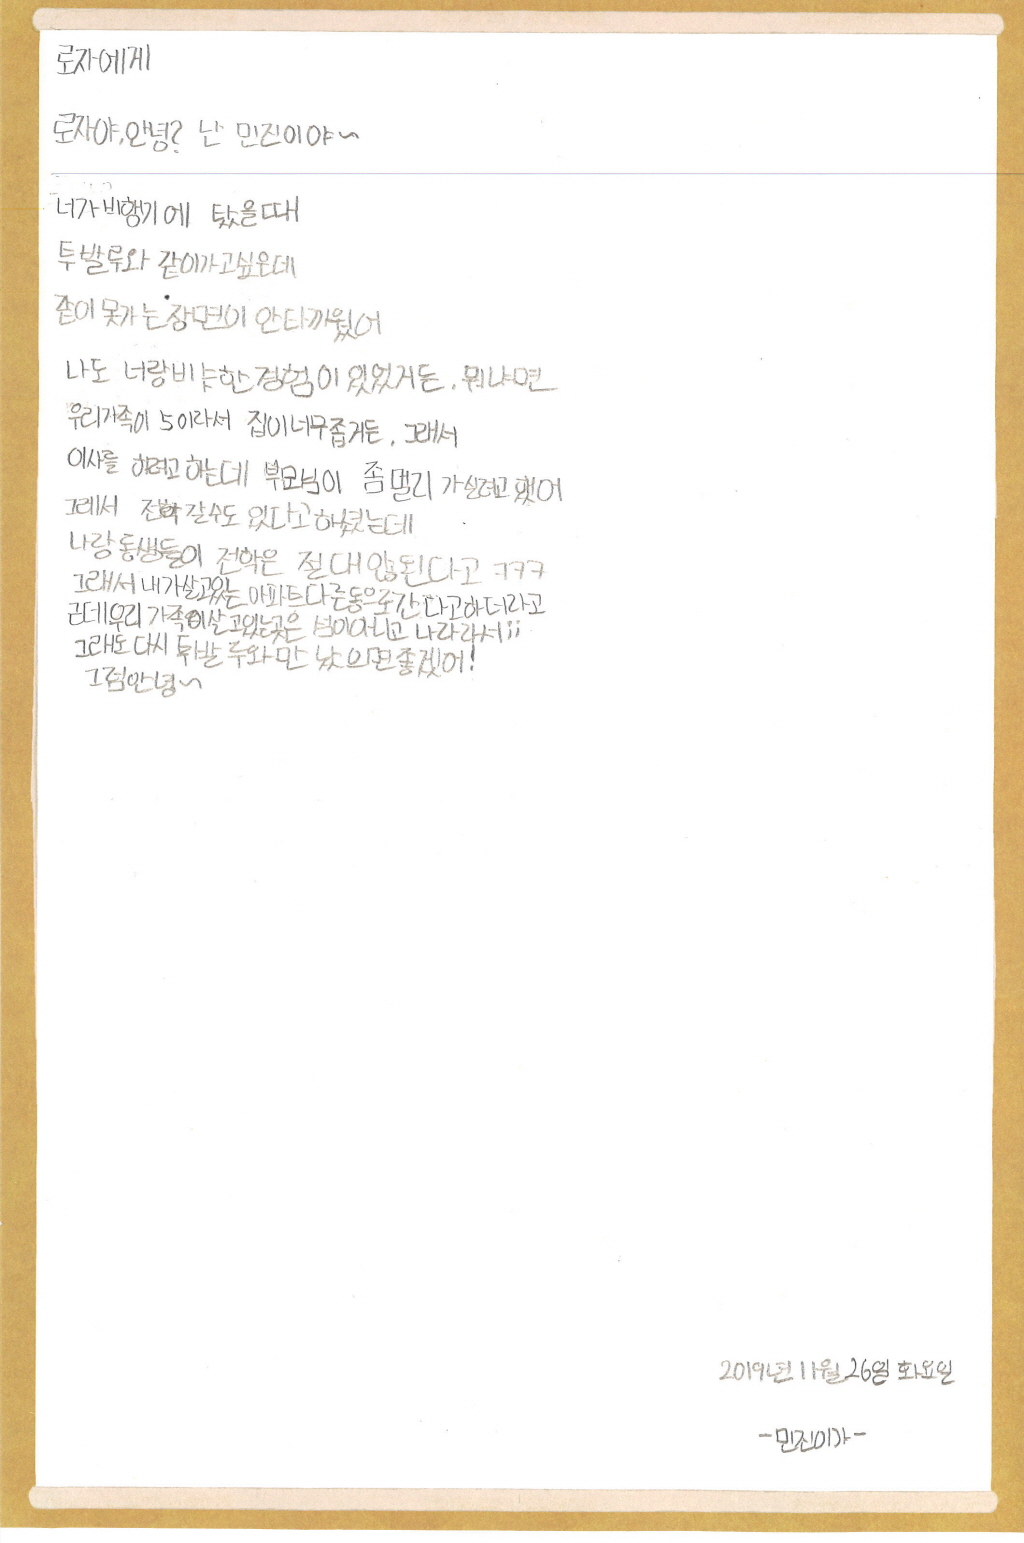 로자에게
로자야, 안녕? 난 민진이야~
너가 비행기에 탔을때
투발루와 같이가고싶은데
같이 못가는 장면이 안타까웠어
나도 너랑비슷한경험이 있었거든, 뭐냐면
우리가족이 5이라서 집이너무좁거든, 그래서
이사를 하려고 하는데 부모님이 좀 멀리 가실려고 했어
그래서 전학 갈수도 있다고 하셨는데
나랑 동생들이 전학은 절대 않된다고 ㅋㅋㅋ
그래서 내가살고있는 아파트다른동으로간다고하더라고
근데우리 가족이살고있는곳은 섬이아니고 나라라서;;
그래도 다시 투발루와 만났으면좋겠어!
그럼안녕~
2019년 11월 26일 화요일
-민진이가-